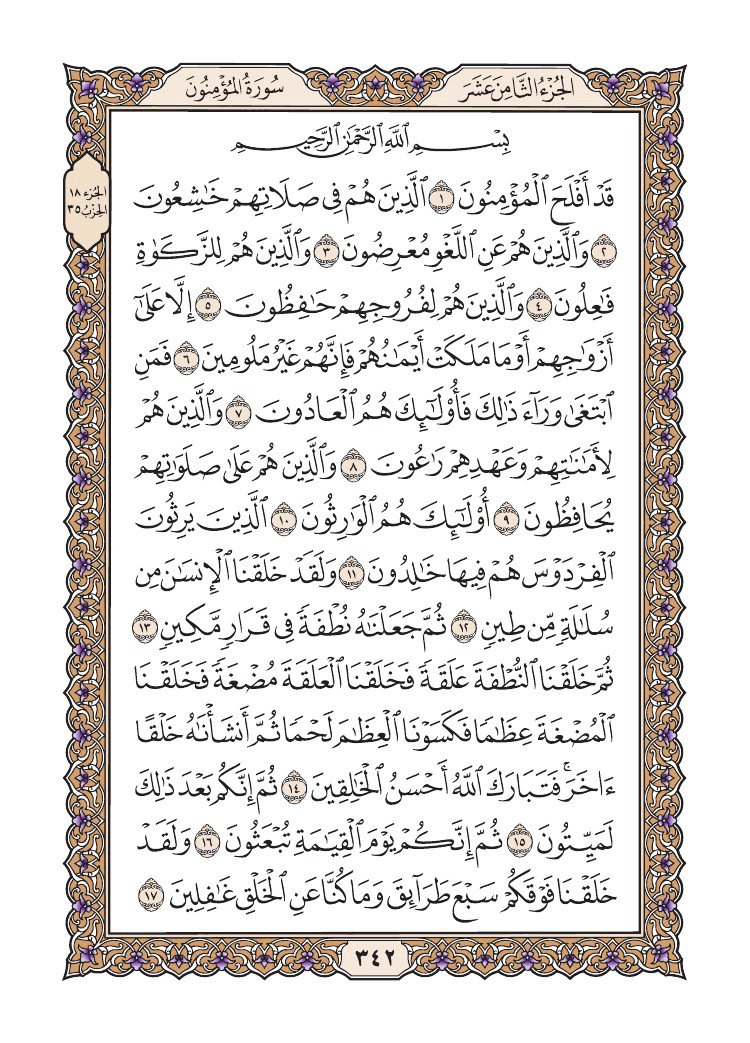 الجُزْءُ الثَّامِنَ عَشَرَ
سُورَةُ المُؤْمِنُونَ
الجُزء ١٨
الحِزبُ ٣٥
بِسْمِ ٱللَّهِ ٱلرَّحْمَٰنِ ٱلرَّحِيمِ
قَدْ أَفْلَحَ ٱلْمُؤْمِنُونَ ١ ٱلَّذِينَ هُمْ فِى صَلَاتِهِمْ خَٰشِعُونَ
٢ وَٱلَّذِينَ هُمْ عَنِ ٱللَّغْوِ مُعْرِضُونَ ٣ وَٱلَّذِينَ هُمْ لِلزَّكَوٰةِ
فَٰعِلُونَ ٤ وَٱلَّذِينَ هُمْ لِفُرُوجِهِمْ حَٰفِظُونَ ٥ إِلَّا عَلَىٰٓ
أَزْوَٰجِهِمْ أَوْ مَا مَلَكَتْ أَيْمَٰنُهُمْ فَإِنَّهُمْ غَيْرُ مَلُومِينَ ٦ فَمَنِ
ٱبْتَغَىٰ وَرَآءَ ذَٰلِكَ فَأُو۟لَٰٓئِكَ هُمُ ٱلْعَادُونَ ٧ وَٱلَّذِينَ هُمْ
لِأَمَٰنَٰتِهِمْ وَعَهْدِهِمْ رَٰعُونَ ٨ وَٱلَّذِينَ هُمْ عَلَىٰ صَلَوَٰتِهِمْ
يُحَافِظُونَ ٩ أُو۟لَٰٓئِكَ هُمُ ٱلْوَٰرِثُونَ ١٠ ٱلَّذِينَ يَرِثُونَ
ٱلْفِرْدَوْسَ هُمْ فِيهَا خَٰلِدُونَ ١١ وَلَقَدْ خَلَقْنَا ٱلْإِنسَٰنَ مِن
سُلَٰلَةٍ مِّن طِينٍ ١٢ ثُمَّ جَعَلْنَٰهُ نُطْفَةً فِى قَرَارٍ مَّكِينٍ ١٣
ثُمَّ خَلَقْنَا ٱلنُّطْفَةَ عَلَقَةً فَخَلَقْنَا ٱلْعَلَقَةَ مُضْغَةً فَخَلَقْنَا
ٱلْمُضْغَةَ عِظَٰمًا فَكَسَوْنَا ٱلْعِظَٰمَ لَحْمًا ثُمَّ أَنشَأْنَٰهُ خَلْقًا
ءَاخَرَ ۚ فَتَبَارَكَ ٱللَّهُ أَحْسَنُ ٱلْخَٰلِقِينَ ١٤ ثُمَّ إِنَّكُم بَعْدَ ذَٰلِكَ
لَمَيِّتُونَ ١٥ ثُمَّ إِنَّكُمْ يَوْمَ ٱلْقِيَٰمَةِ تُبْعَثُونَ ١٦ وَلَقَدْ
خَلَقْنَا فَوْقَكُمْ سَبْعَ طَرَآئِقَ وَمَا كُنَّا عَنِ ٱلْخَلْقِ غَٰفِلِينَ ١٧
٣٤٢